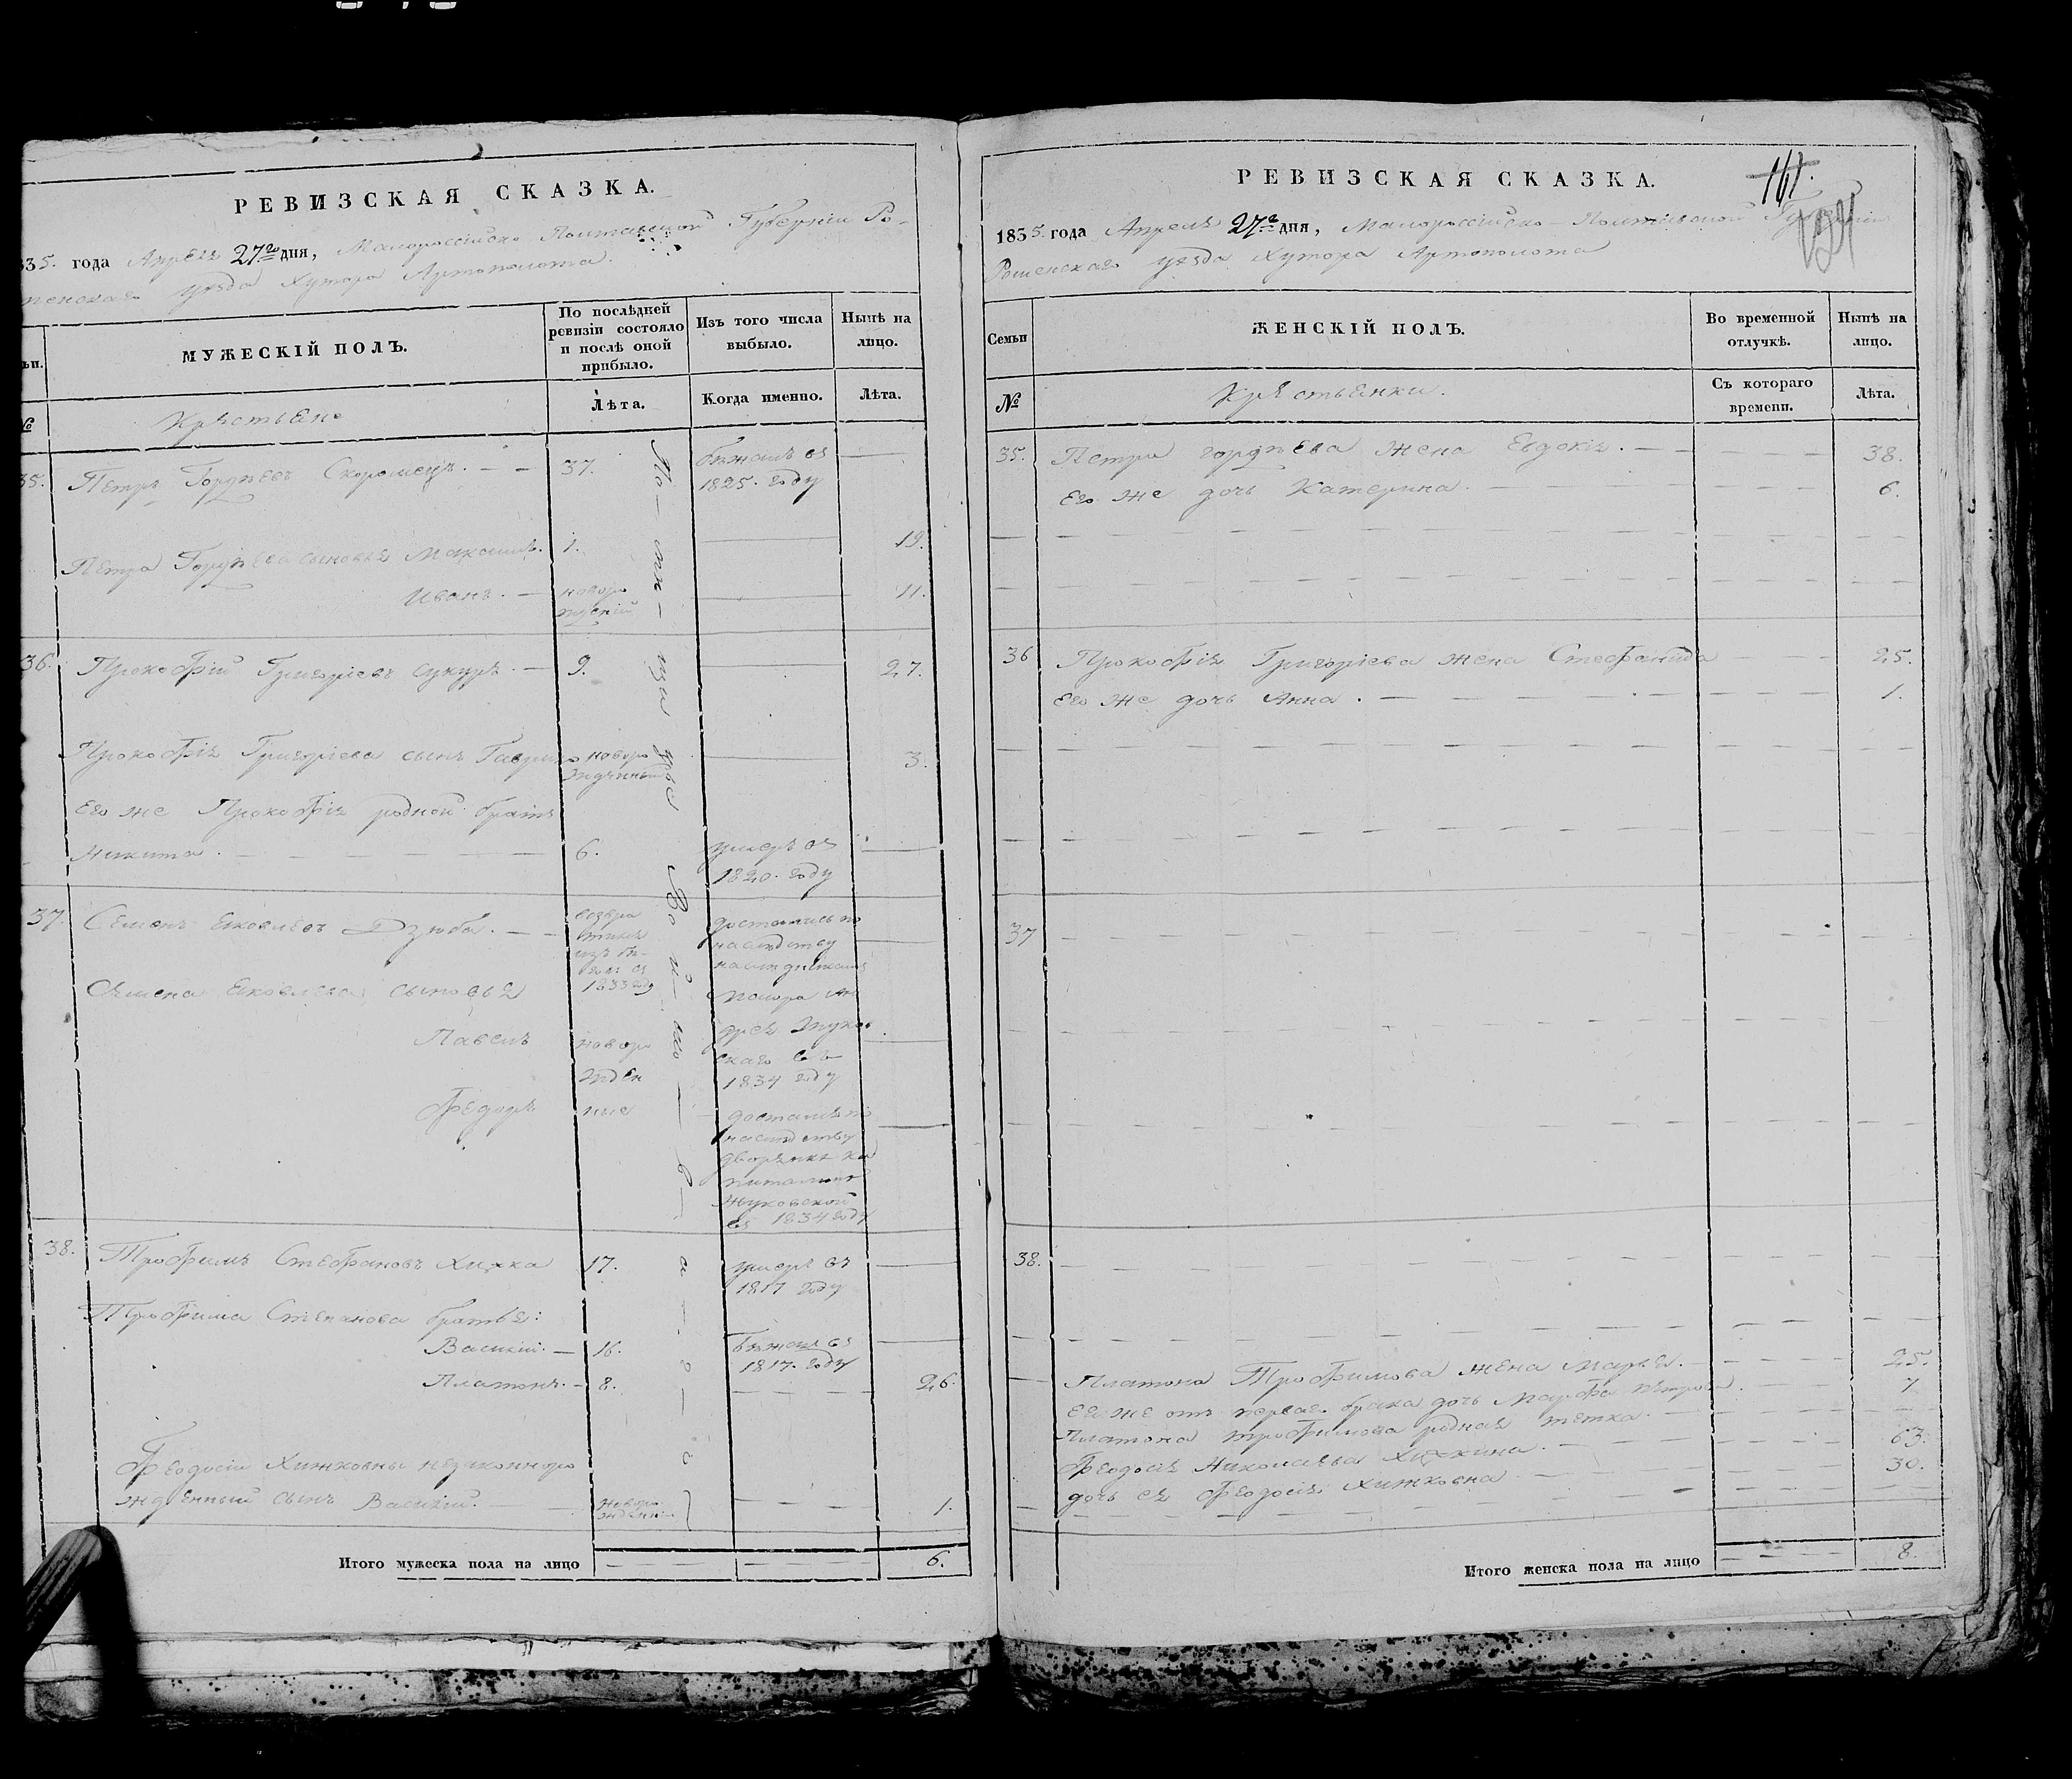 РЕВИЗСКАЯ СКАЗКА.
35. года Апреля 27го дня, Малороссійско Полтавской Губерніи Ро-
менскаго уѣзда Хутора Артополота.
МУЖЕСКІЙ ПОЛЪ.
По послѣдней ревизіи состояло и послѣ оной прибыло.
Изъ того числа выбыло.
Нынѣ на лицо.
№
Крестьяне
Лѣта.
Когда именно.
Лѣта.
35. Петръ Гордѣевъ Скоромецъ. 37. бѣжалъ въ
1825. году
Петра Гордѣева сыновья Максимъ. 1. 19.
Иванъ. новоро 11.
36. Прокофій Григоріевъ 9. 27.
Прокофія Григоріева сынъ Гаврило новоро 3.
жденный
Его же Прокофія родной братъ
Никита. 6. умеръ въ
1820. году
37. Семенъ Яковлевъ Дзюба. возвра
тился
изъ бѣ-
говъ въ
1833 году
достались по
наслѣдству
Семена Яковлева сыновья
Павелъ новоро
жден
Федоръ ные
маіора Ан
дрея Жуков
скаго въ
1834 году
досталась по
наслѣдству
дворянкѣ ка
питаншѣ
Жуковской
въ 1834 году
38. Трофимъ Стефановъ Хижка 17. умеръ въ
1817 году
Трофима Степанова братья:
Василий. 16. бѣжалъ въ
1817. году
Платонъ. 8. 26.
Феодосіи Хижковны незаконноро
жденный сынъ Василий. новоро 1.
Итого мужеска пола на лицо 6.
РЕВИЗСКАЯ СКАЗКА.
161.
1835. года Апреля 27го дня, Малороссійско-Полтавской Губерніи
Роменскаго уѣзда Хутора Артополота
Семьи
ЖЕНСКІЙ ПОЛЪ.
Во временной отлучкѣ.
Нынѣ на лицо.
№
Крестьянки.
Съ котораго времени.
Лѣта.
35. Петра Гордѣева жена Евдокія. 38.
Его же дочь Катерина. 6.
36 Прокофія Григоріева жена Стефанида 25.
Его же дочь Анна. 1.
37
38.
Платона Трофимова жена Марья. 25.
Ея же отъ перваго брака дочь Марфа Петрова. 7
Платона Трофимова родная тетка
Феодосія Николаева Хижкина. 63.
дочь ея Феодосія Хижковна 30.
Итого женска пола на лицо 8.